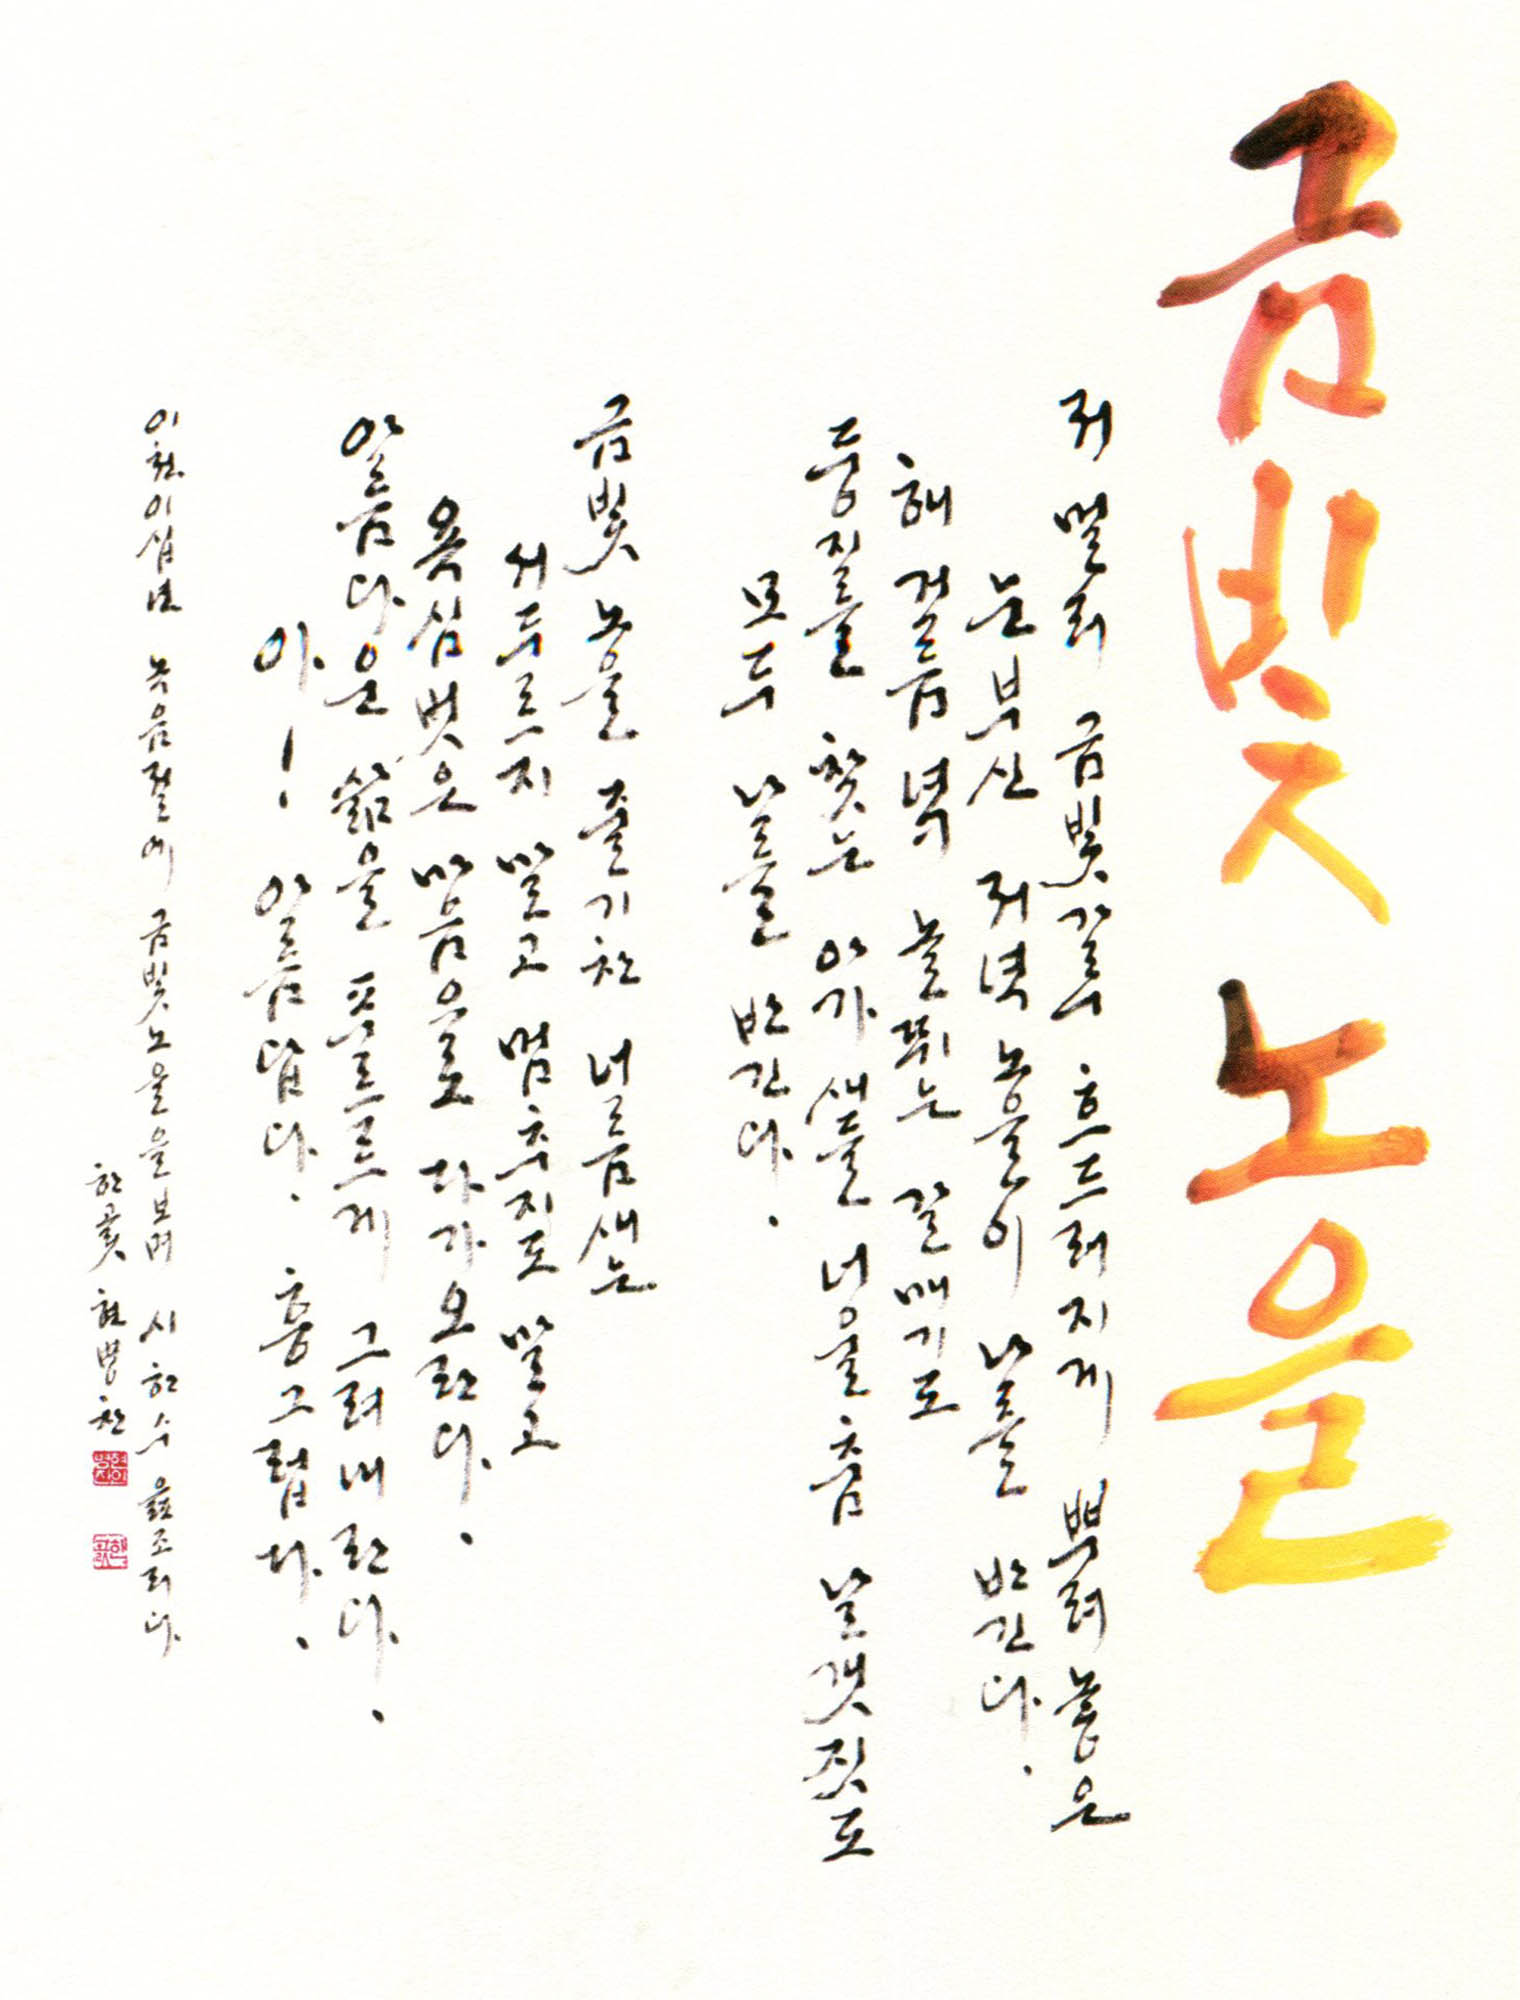 금빛 노을
저 멀리 금빛가루 흐드러지게 뿌려 놓은
눈부신 저녁노을이 나를 반긴다.
해 걸음 녘 늘 뛰는 갈매기도
둥지를 찾는 아가새들 너울춤 날갯짓도
모두 나를 반긴다.
금빛 노을 즐기찬 너름새는
서두르지 말고 멈추지도 말고
욕심벗은 마음으로 다가오란다.
아름다운 삶을 푸르르게 그려내란다.
아! 아름답다. 흠그럽다.
이천이십년 녹음절에 금빛노을을 보며 시 한수 읊조리다
한곬 현병찬